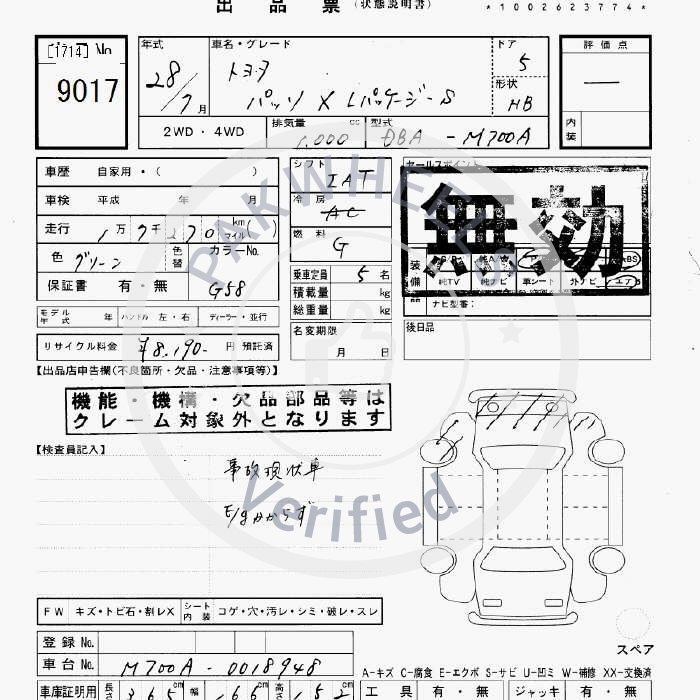 出品票(状態説明書) *1002623774*
[1714] No
9017
年式 車名・グレード ドア 評価点
28/7月 トヨタ 5 —
パッソ X Lパッケージ-S 形状 HB
2WD・4WD 排気量 cc 1,000 型式 DBA - M700A 内装
車歴 自家用・( ) シフト IAT セールスポイント
車検 平成 年 月 冷房 AC
無効
走行 1万7千270 km(マイル) 燃料 G
色 グリーン 色替 カラーNo. 乗車定員 5名 装備 純TV 純ナビ 革シート 外ナビ エアB
保証書 有・無 G58 積載量 kg
総重量 kg ナビ型番:
モデル年式 年 ハンドル 左・右 ディーラー・並行 名変期限 月 日 後日品
リサイクル料金 ¥8,190- 円 預託済
【出品店申告欄(不良箇所・欠品・注意事項等)】
機能・機構・欠品部品等は
クレーム対象外となります
【検査員記入】
事故現状車
E/gかからず
PAKWHEELS
Verified
FW キズ・トビ石・割レX シート内装 コゲ・穴・汚レ・シミ・破レ・スレ
スペア
登録No.
車台No. M700A - 0018948
A-キズ C-腐食 E-エクボ S-サビ U-凹ミ W-補修 XX-交換済
車庫証明用 長さ 365cm 幅 166cm 高さ 152cm 工具 有・無 ジャッキ 有・無